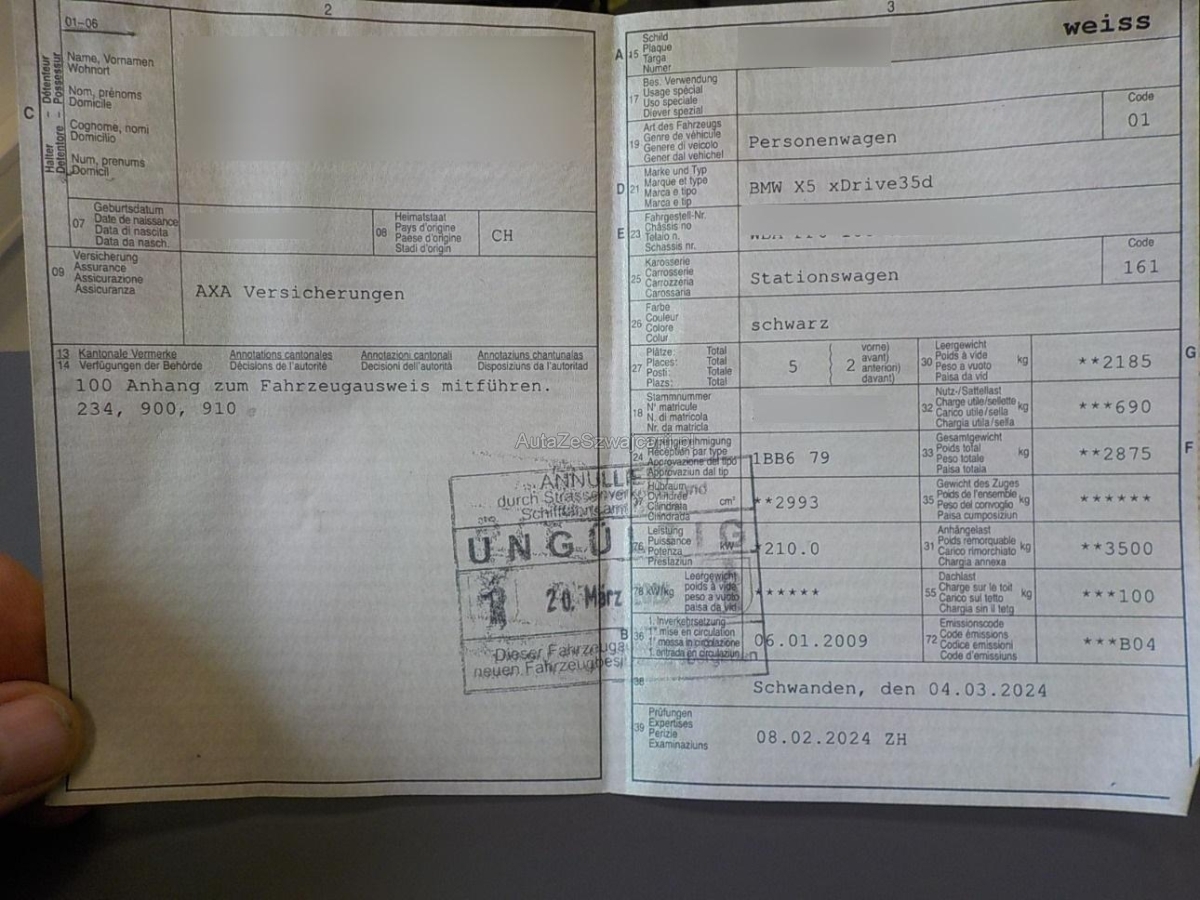 2
01-06
Halter - Détenteur
Detentore - Possessur
C
Name, Vornamen
Wohnort
Nom, prénoms
Domicile
Cognome, nomi
Domicilio
Num, prenums
Domicil
07
Geburtsdatum
Date de naissance
Data di nascita
Data da nasch.
08
Heimatstaat
Pays d'origine
Paese d'origine
Stadi d'origin
CH
09
Versicherung
Assurance
Assicurazione
Assicuranza
AXA Versicherungen
13 Kantonale Vermerke Annotations cantonales Annotazioni cantonali Annotaziuns chantunalas
14 Verfügungen der Behörde Décisions de l'autorité Decisioni dell'autorità Disposiziuns da l'autoritad
100 Anhang zum Fahrzeugausweis mitführen.
234, 900, 910
ANNULLIE
durch Strassenver und
Schifffahrtsamt
UNGÜ IG
1 20. März
Dieser Fahrzeuga
neuen Fahrzeugbesi
3
weiss
A 15
Schild
Plaque
Targa
Numer
17
Bes. Verwendung
Usage spécial
Uso speciale
Diever spezial
19
Art des Fahrzeugs
Genre de véhicule
Genere di veicolo
Gener dal vehichel
Personenwagen
Code
01
D 21
Marke und Typ
Marque et type
Marca e tipo
Marca e tip
BMW X5 xDrive35d
E 23
Fahrgestell-Nr.
Châssis no
Telaio n.
Schassis nr.
25
Karosserie
Carrosserie
Carrozzeria
Carossaria
Stationswagen
Code
161
26
Farbe
Couleur
Colore
Colur
schwarz
27
Plätze: Total
Places: Total
Posti: Totale
Plazs: Total
5
2
vorne)
avant)
anteriori)
davant)
30
Leergewicht
Poids à vide
Peso a vuoto
Paisa da vid
kg
**2185
G
18
Stammnummer
N° matricule
N. di matricola
Nr. da matricla
32
Nutz-/Sattellast
Charge utile/sellette
Carico utile/sella
Chargia utila/sella
kg
***690
AutaZeSzwajcarii
24
Réception par type
Approvazione del tipo
Approvaziun dal tip
1BB6 79
33
Gesamtgewicht
Poids total
Peso totale
Paisa totala
kg
**2875
F
37
Hubraum
Cylindrée
Cilindrata
Cilindrada
cm³
**2993
35
Gewicht des Zuges
Poids de l'ensemble
Peso del convoglio
Paisa cumposiziun
kg
******
76
Leistung
Puissance
Potenza
Prestaziun
kW
*210.0
31
Anhängelast
Poids remorquable
Carico rimorchiato
Chargia annexa
kg
**3500
78 kW/kg
Leergewicht
poids à vide
peso a vuoto
paisa da vid
******
55
Dachlast
Charge sur le toit
Carico sul tetto
Chargia sin il tetg
kg
***100
B 36
1. Inverkehrsetzung
1re mise en circulation
1a messa in circolazione
1. entrada en circulaziun
06.01.2009
72
Emissionscode
Code émissions
Codice emissioni
Code d'emissiuns
***B04
38
Schwanden, den 04.03.2024
39
Prüfungen
Expertises
Perizie
Examinaziuns
08.02.2024 ZH